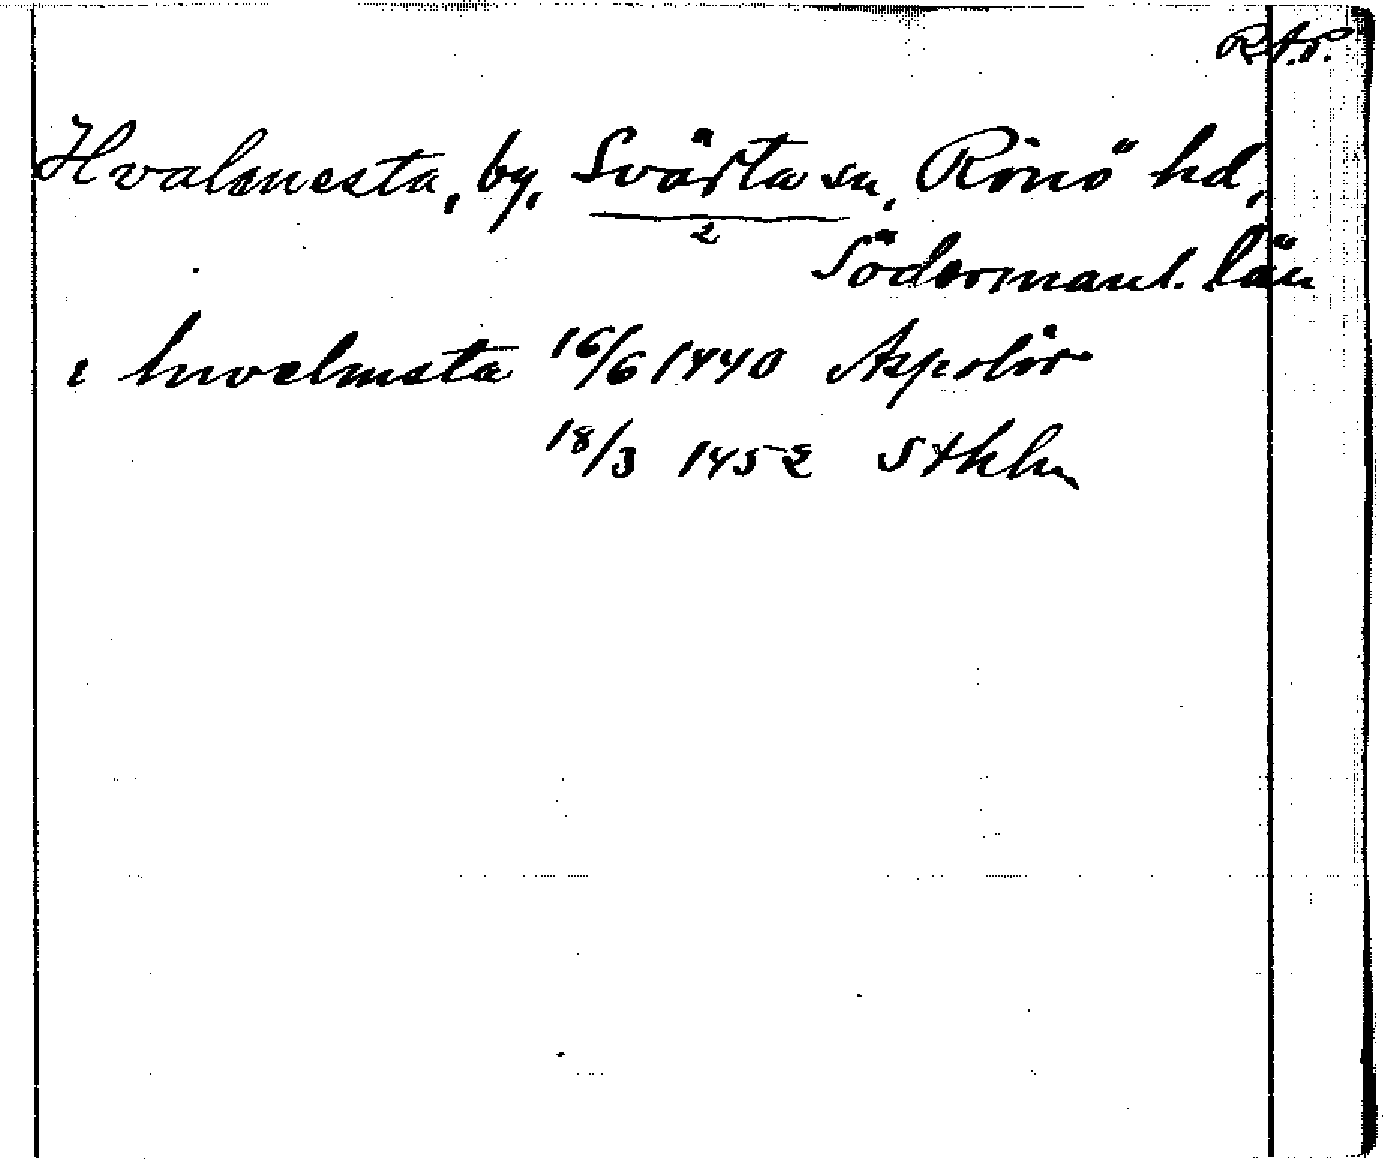 R.A.P.
Hvalmesta, by, Svärta sn, Rönö hd,
2
Södermanl. län
i hwelmsta 16/6 1440 Aspolör
18/3 1452 Sthlm